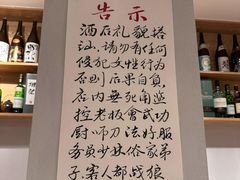 告示
酒后礼貌搭
讪,请勿有任何
侵犯女性行为
否则后果自负,
店内无死角监
控老板会武功
厨师刀法好服
务员少林俗家弟
子,客人都战狼